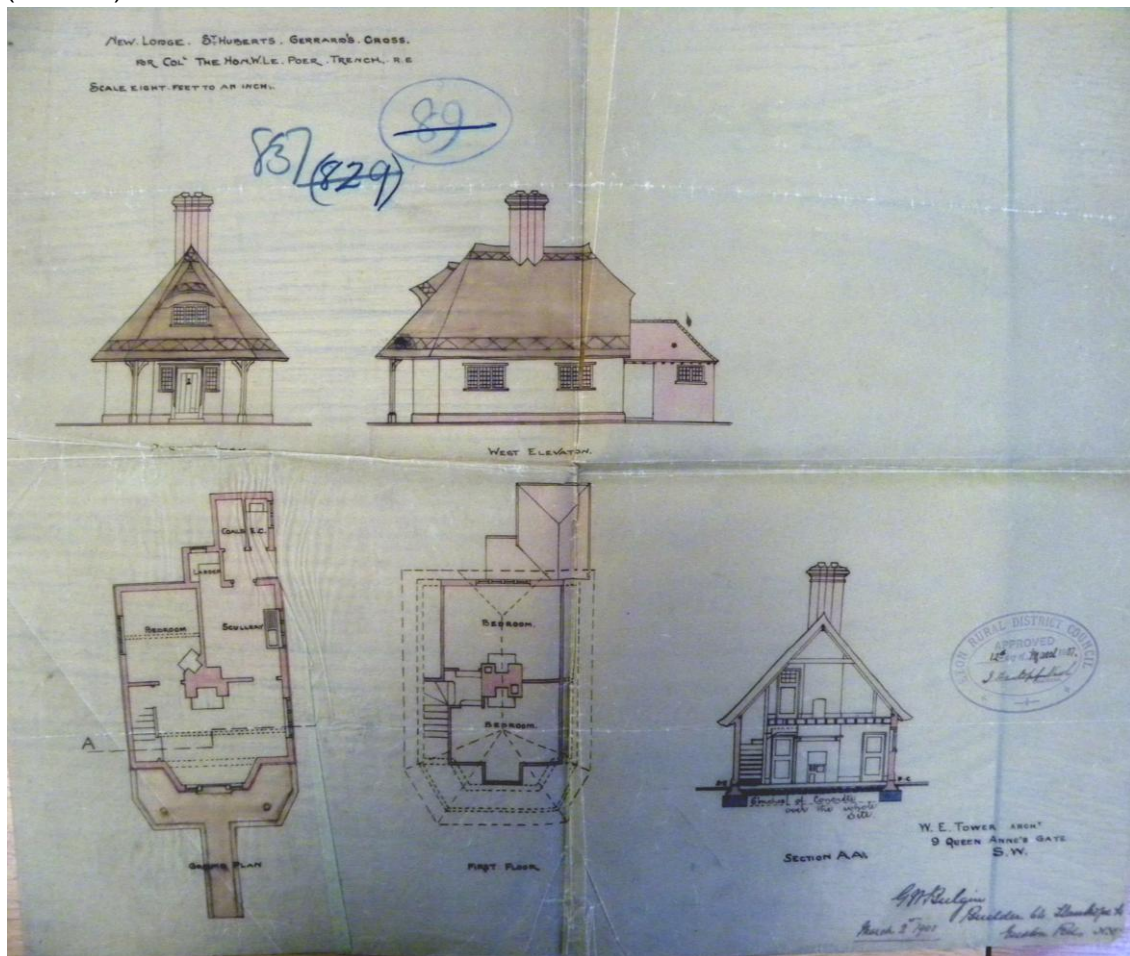 NEW. LODGE. ST HUBERTS. GERRARD'S. CROSS.
FOR COLL THE HON. W. LE. POER. TRENCH. R.E
SCALE EIGHT. FEET TO AN INCH.
89
837 (829)
WEST ELEVATON.
COALS E.C.
LARDER
BEDROOM
SCULLERY
A
GROUND PLAN
BEDROOM.
BEDROOM.
FIRST FLOOR
RURAL DISTRICT COUNCIL
APPROVED
of Concrete
over the whole
site.
SECTION AA
W. E. TOWER ARCHT
9 QUEEN ANNE'S GATE
S.W.
Builder
March 2nd